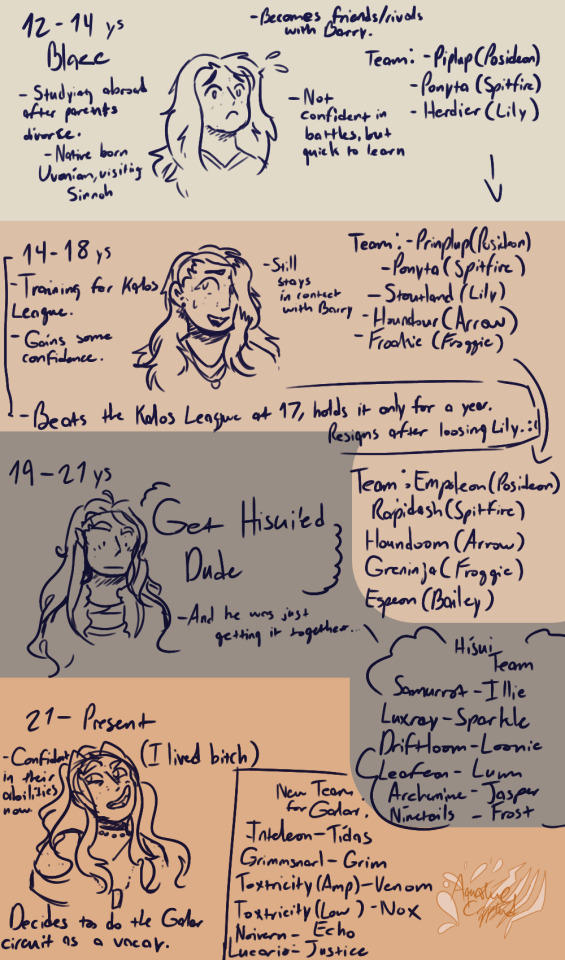 12-14 ys
Blaze
- Studying abroad
after parents
divorse.
- Native born
Uvonian, visiting
Sinnoh
- Becomes friends/rivals
with Barry.
- Not
confident in
battles, but
quick to learn
Team: - Piplup (Posideon)
- Ponyta (Spitfire)
- Herdier (Lily)
14-18 ys
- Training for Kalos
League.
- Gains some
confidence.
- Still
stays
in contact
with Barry
Team: - Prinplup (Posideon)
- Ponyta (Spitfire)
- Stoutland (Lily)
- Houndour (Arrow)
- Froakie (Froggie)
- Beats the Kalos League at 17, holds it only for a year.
Resigns after loosing Lily. :(
Team: Empoleon (Posideon)
Rapidash (Spitfire)
Houndoom (Arrow)
Greninja (Froggie)
Espeon (Bailey)
19-21 ys
Get Hisui'ed
Dude
- And he was just
getting it together...
Hisui
Team
Samurrot - Illie
Luxray - Sparkle
Drifloom - Loonie
Leafeon - Luwn
Archenine - Jasper
Ninetails - Frost
21 - Present
(I lived bitch)
- Confident
in their
abilities
now
Decides to do the Galar
circuit as a vacay.
New Team
for Galar:
Inteleon - Tidas
Grimmsnarl - Grim
Toxtricity (Amp) - Venom
Toxtricity (Low) - Nox
Noivern - Echo
Lucario - Justice